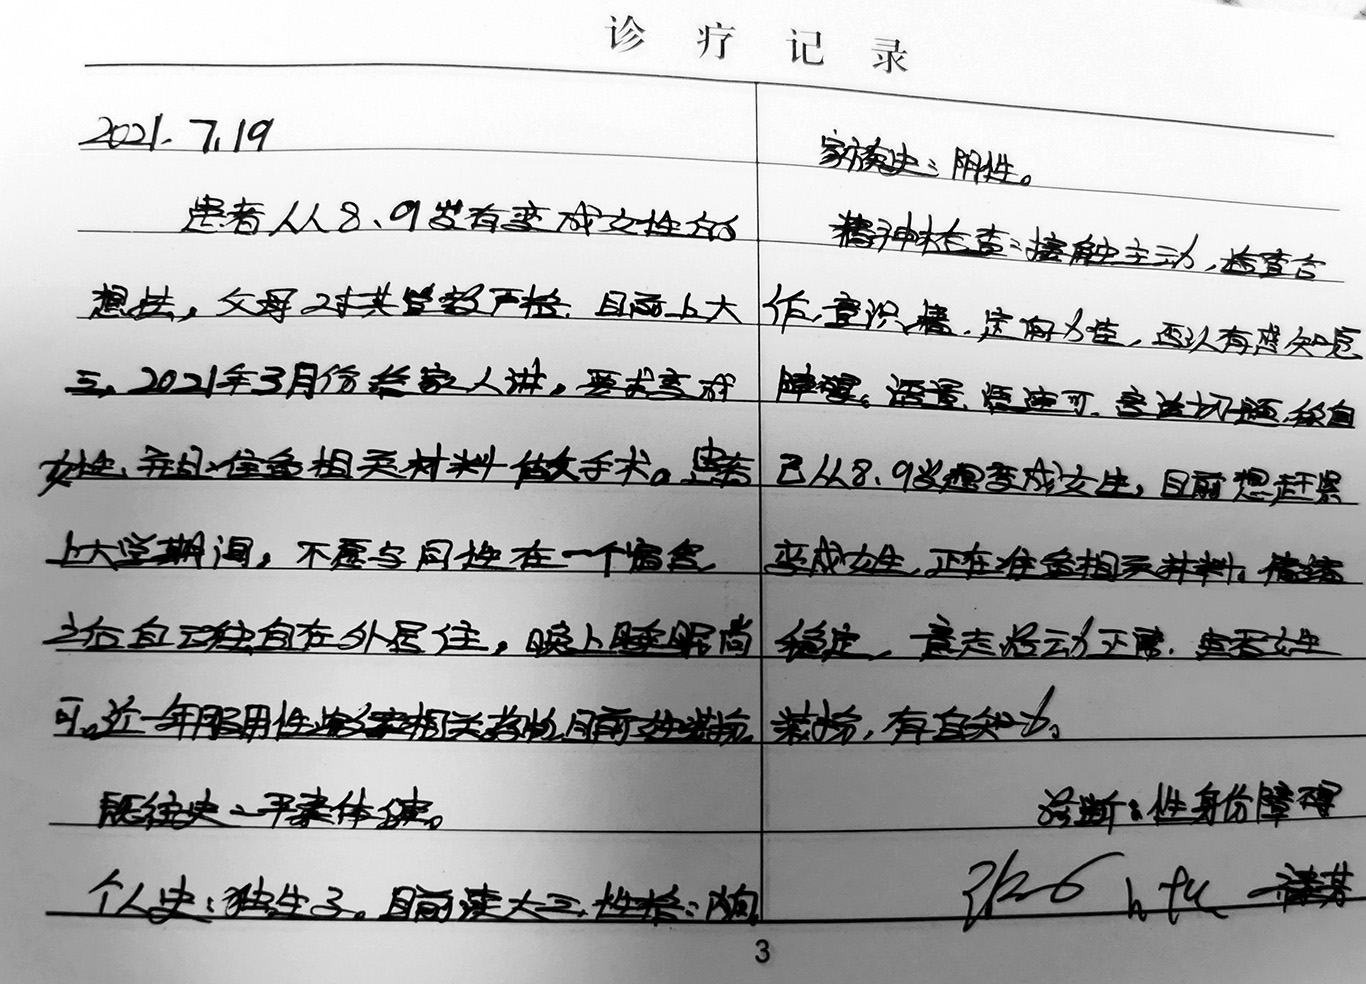 诊疗记录
2021.7.19
患者人从8、9岁有变成女性的
想法，父母对其管教严格.目前上大
三，2021年3月份给家人讲，要求变成
女性、并且准备相关材料做手术。患者
上大学期间，不愿与同性在一个宿舍
之后自己独自在外居住，晚上睡眠尚
可。近一年服用性激素相关药物，目前女性装扮.
既往史：平素体健。
个人史：独生子。目前读大三，性格：内向
家族史：阴性。
精神检查：接触主动，检查合
作，意识清，定向力佳，否认有感知觉
障碍。语量、语速可，言谈切题，称自
己从8.9岁想变成女生，目前想赶紧
变成女生，正在准备相关材料。情绪
稳定，意志活动下常.女生
装扮，有自知力。
诊断：性身份障碍